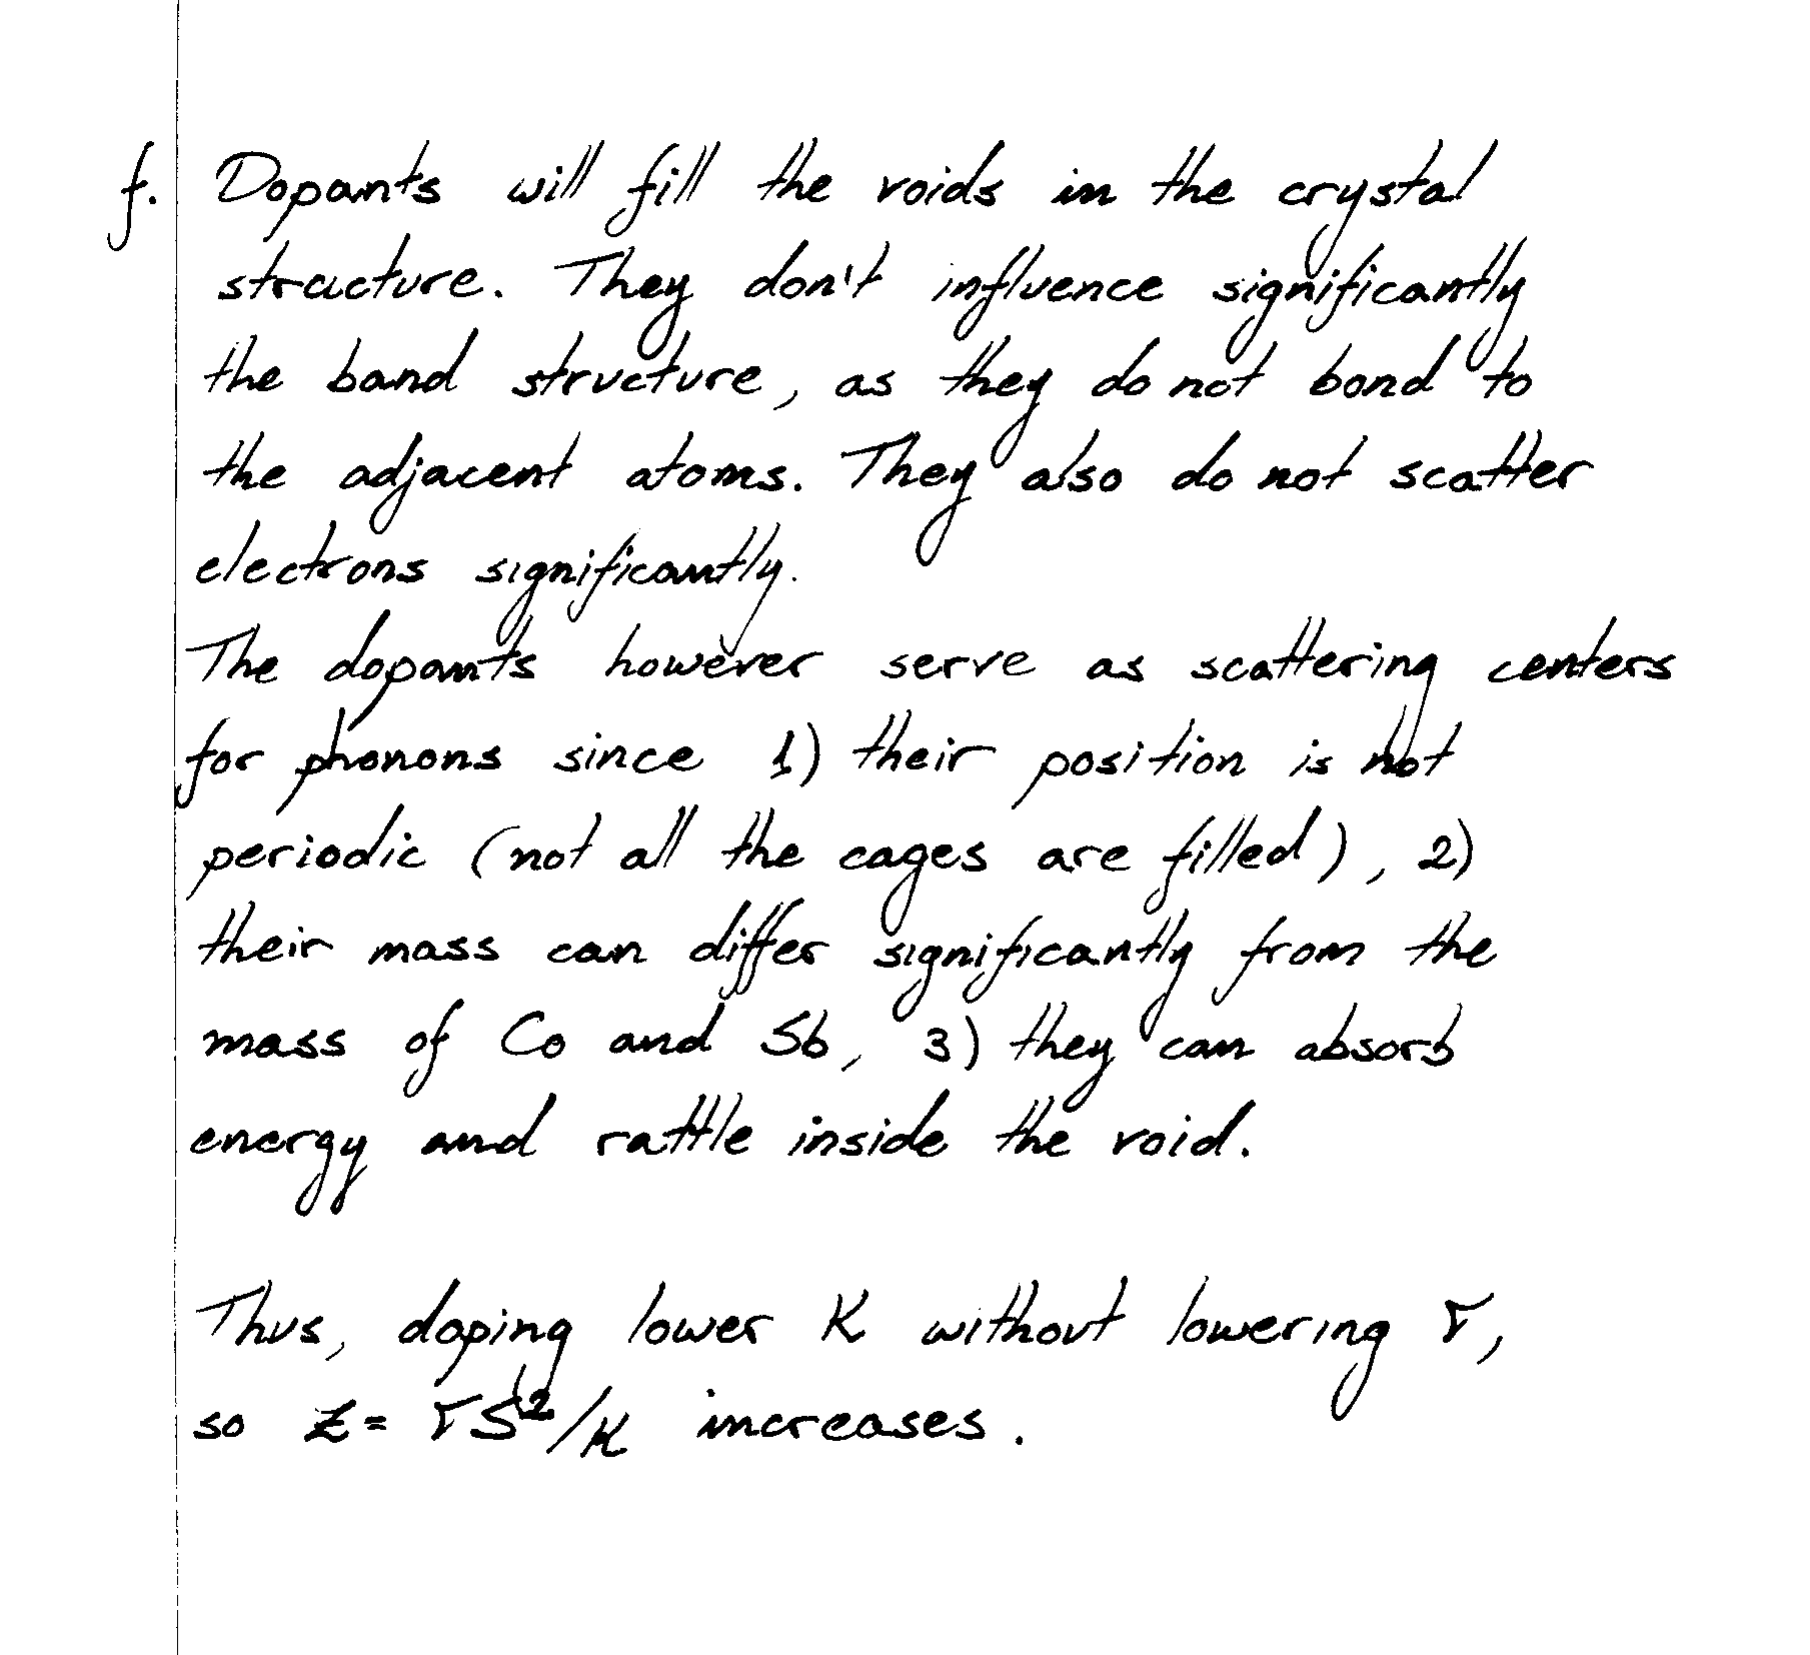 f. Dopants will fill the voids in the crystal
structure. They don't influence significantly
the band structure, as they do not bond to
the adjacent atoms. They also do not scatter
electrons significantly.
The dopants however serve as scattering centers
for phonons since 1) their position is not
periodic (not all the cages are filled), 2)
their mass can differ significantly from the
mass of Co and Sb, 3) they can absorb
energy and rattle inside the void.
Thus, doping lower K without lowering σ,
so Z = σS²/K increases.